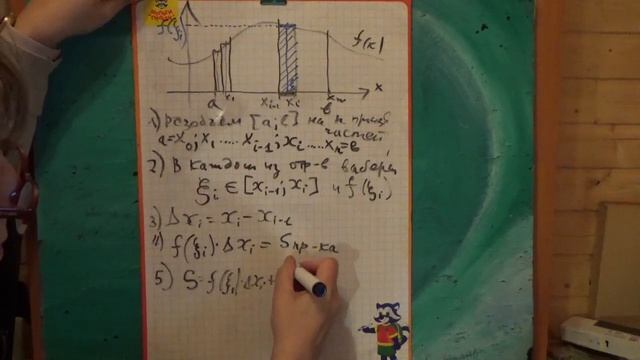 f(ξᵢ)
f(x)
a x₁ xᵢ₋₁ xᵢ xₙ x
в
1) разобьем [a;в] на n произв
частей
a=x₀; x₁ ..... xᵢ₋₁; xᵢ ..... xₙ=в
2) В каждом из отр-в выберем
ξᵢ ∈ [xᵢ₋₁; xᵢ] и f(ξᵢ)
3) Δxᵢ = xᵢ - xᵢ₋₁
4) f(ξᵢ)·Δxᵢ = Sпр-ка
5) S = f(ξ₁)·Δx₁+